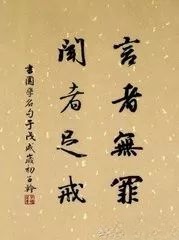 言者無罪
聞者足戒
書國學名句于戊戌歲初